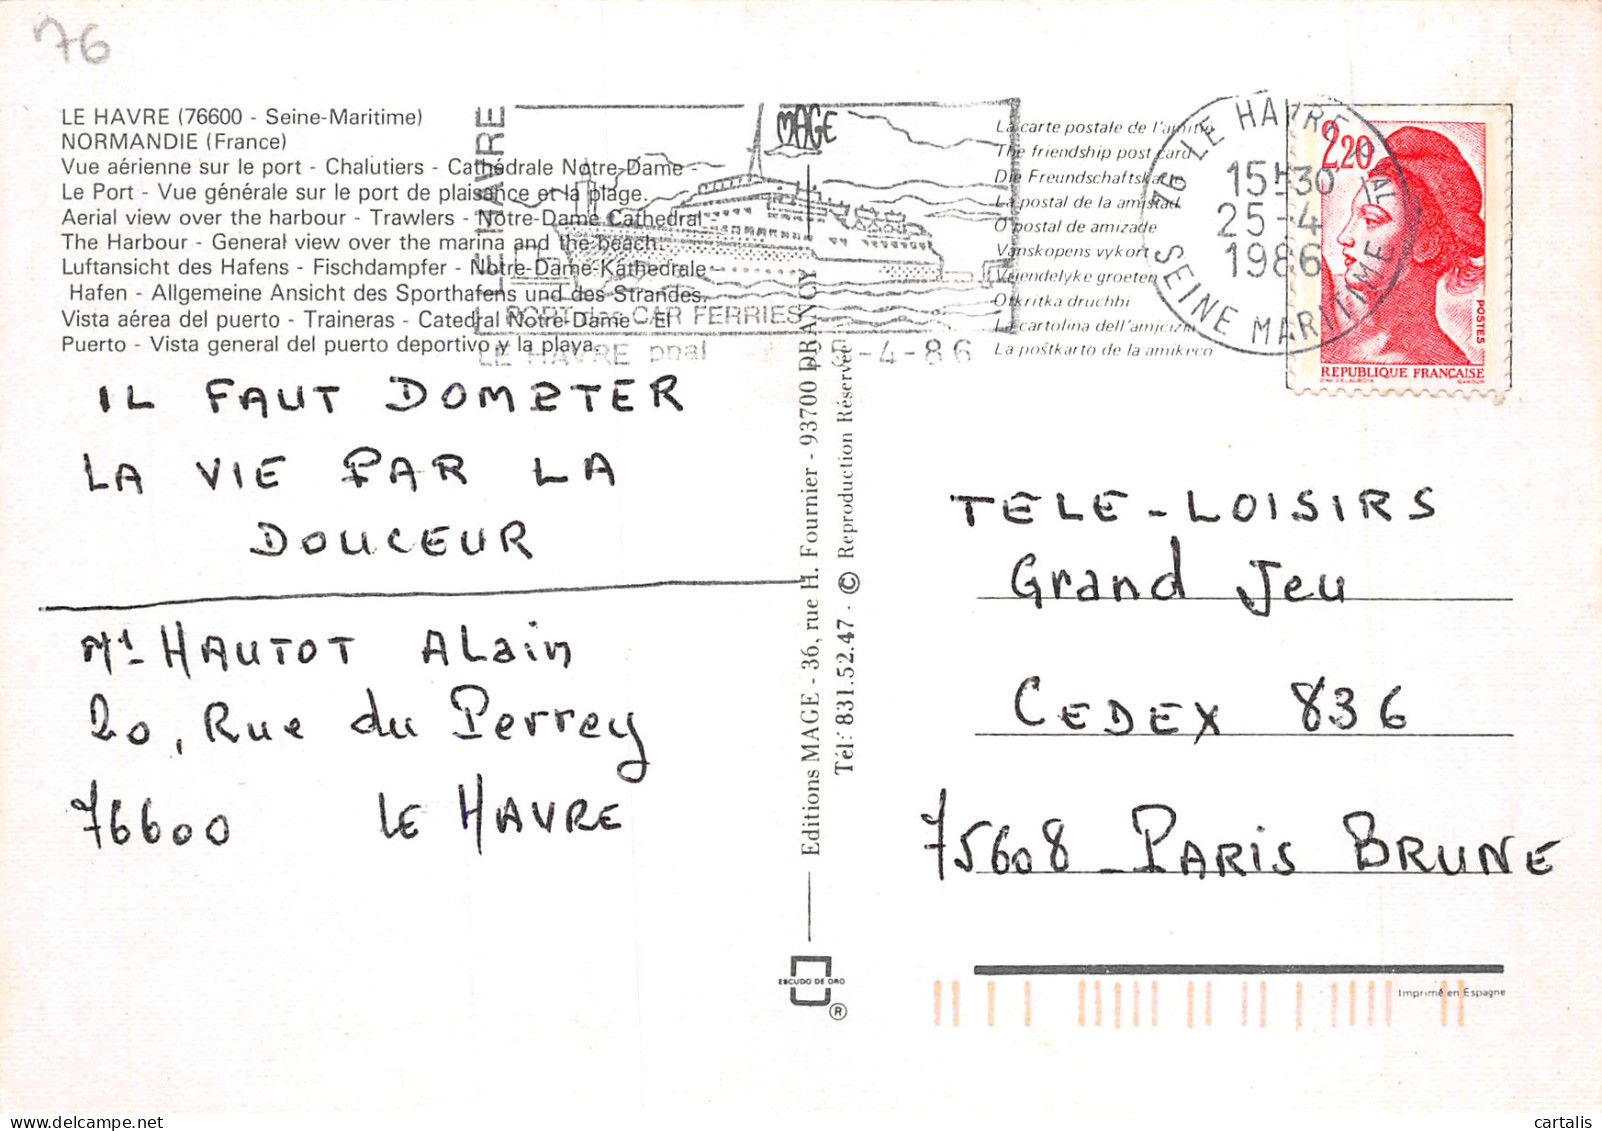 76
LE HAVRE (76600 - Seine-Maritime)
NORMANDIE (France)
Vue aérienne sur le port - Chalutiers - Cathédrale Notre-Dame -
Le Port - Vue générale sur le port de plaisance et la plage.
Aerial view over the harbour - Trawlers - Notre-Dame Cathedral -
The Harbour - General view over the marina and the beach.
Luftansicht des Hafens - Fischdampfer - Notre-Dame-Kathedrale -
Hafen - Allgemeine Ansicht des Sporthafens und des Strandes.
Vista aérea del puerto - Traineras - Catedral Notre-Dame - El
Puerto - Vista general del puerto deportivo y la playa.
LE HAVRE
PORT des CAR FERRIES
LE HAVRE ppal
25-4-86
MAGE
La carte postale de l'amitié
The friendship post card
Die Freundschaftskarte
La postal de la amistad
O postal de amizade
Vanskopens vykort
Vriendelyke groeten
Otkritka druchbi
La cartolina dell'amicizia
La postkarto de la amikeco
76 LE HAVRE PAL
15H30
25-4
1986
SEINE MARITIME
2,20
POSTES
REPUBLIQUE FRANÇAISE
D'AP. DELACROIX GANDON
IL FAUT DOMPTER
LA VIE PAR LA
DOUCEUR
Mr HAUTOT ALain
20, Rue du Perrey
76600 LE HAVRE
Editions MAGE - 36, rue H. Fournier - 93700 DRANCY
Tél.: 831.52.47 - © Reproduction Réservée
TELE-LOISIRS
Grand Jeu
CEDEX 836
75608 - PARIS BRUNE
ESCUDO DE ORO
®
Imprimé en Espagne
cartalis